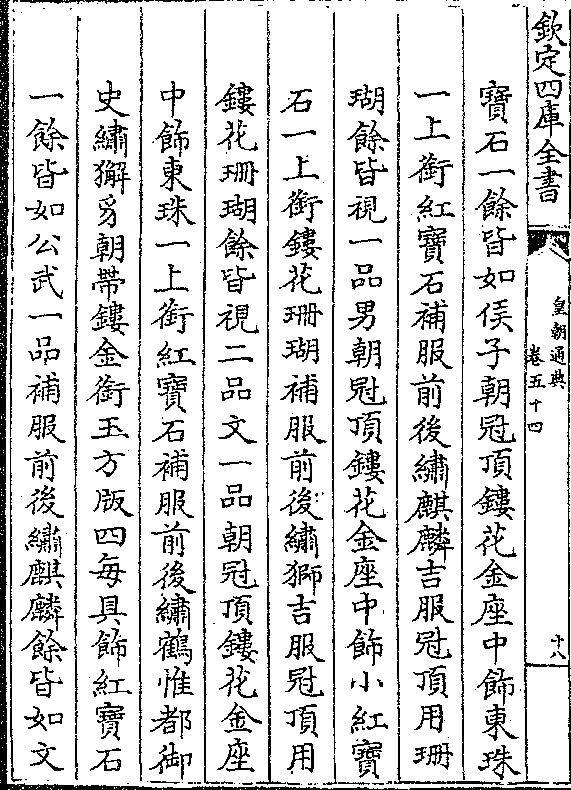 欽定四庫全書
皇朝通典
卷五十四
十八
寶石一餘皆如侯子朝冠頂鏤花金座中飾東珠
一上銜紅寶石補服前後繡麒麟吉服冠頂用珊
瑚餘皆視一品男朝冠頂鏤花金座中飾小紅寶
石一上銜鏤花珊瑚補服前後繡獅吉服冠頂用
鏤花珊瑚餘皆視二品文一品朝冠頂鏤花金座
中飾東珠一上銜紅寶石補服前後繡鶴惟都御
史繡獬豸朝帶鏤金銜玉方版四每具飾紅寶石
一餘皆如公武一品補服前後繡麒麟餘皆如文